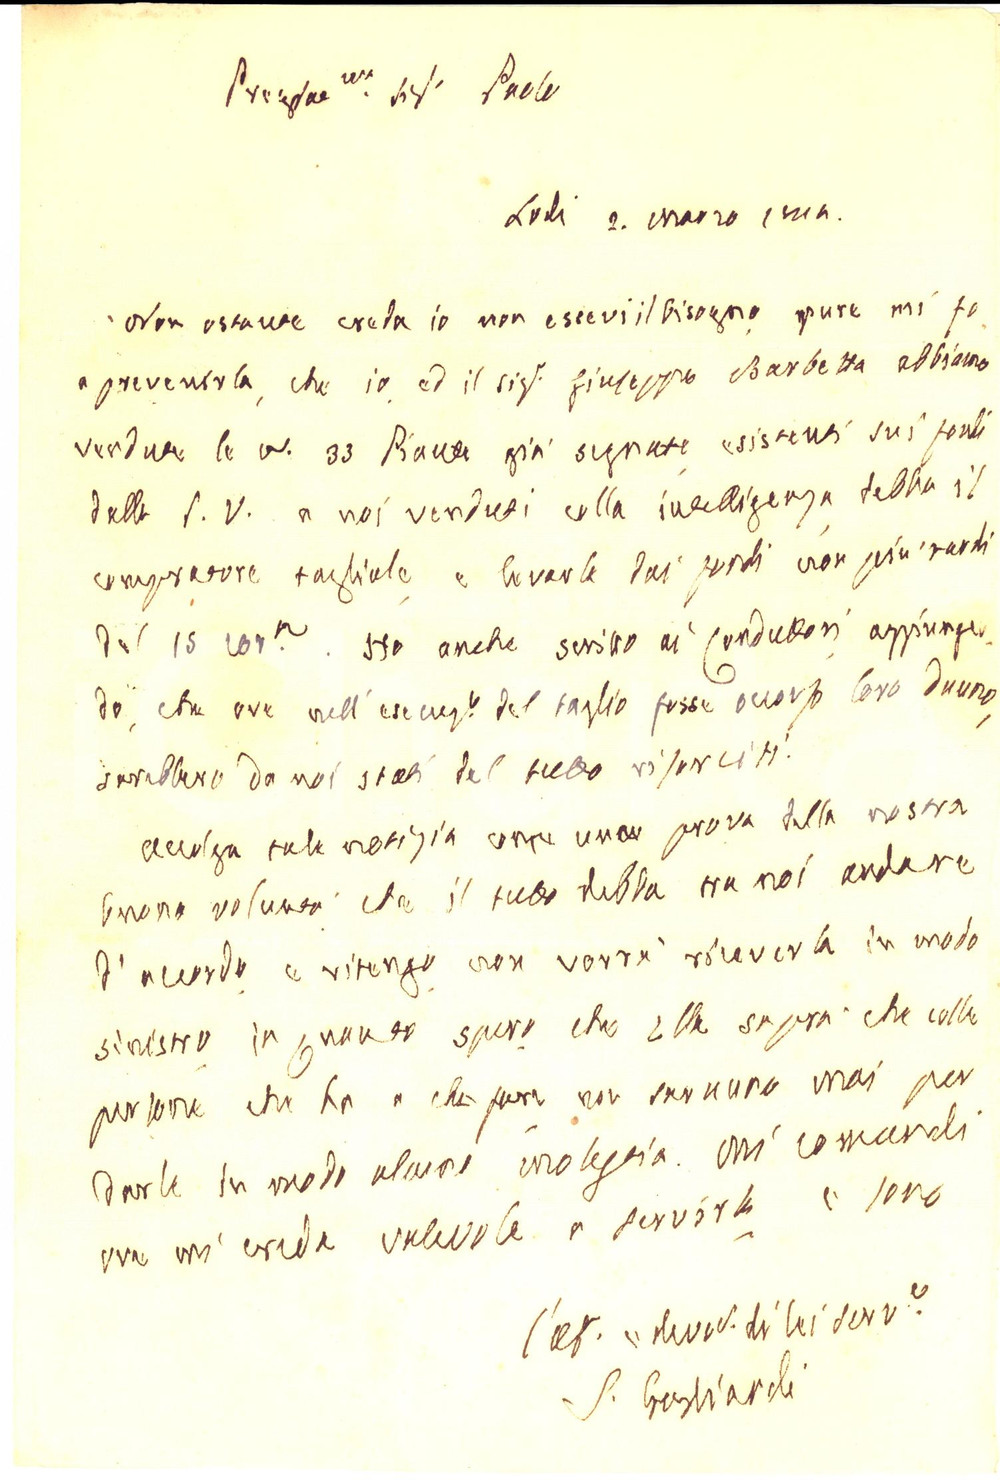 Pregiat.mo Sig.r Paolo
Lodi 2. marzo
Non ostante creda io non esservi il bisogno pure mi fo
a prevenirla, che io, ed il sig.r Giuseppe Barbetta abbiamo
vendute le n. 33 Piante già segnate esistenti sui fondi
della S. V. a noi venduti colla intelligenza debba il
compratore tagliale, e levarle dai fondi non più tardi
del 15 corr.e. Ho anche scritto ai Conduttori aggiungen
do, che ove nell'esecuz.e del taglio fosse occorso loro danno,
sarebbero da noi stati del tutto risarciti.
Accolga tale notizia come una prova della nostra
buona volontà che il tutto debba tra noi andare
d'accordo, e ritengo non vorrà riceverla in modo
sinistro in quanto spero che Ella saprà che colle
persone che ha a che fare non saranno mai per
darle in modo alcuno molestia. Mi comandi
ove mi creda valevole a servirla e sono
l'aff. e devot. di lei serv.e
S. Gagliardi